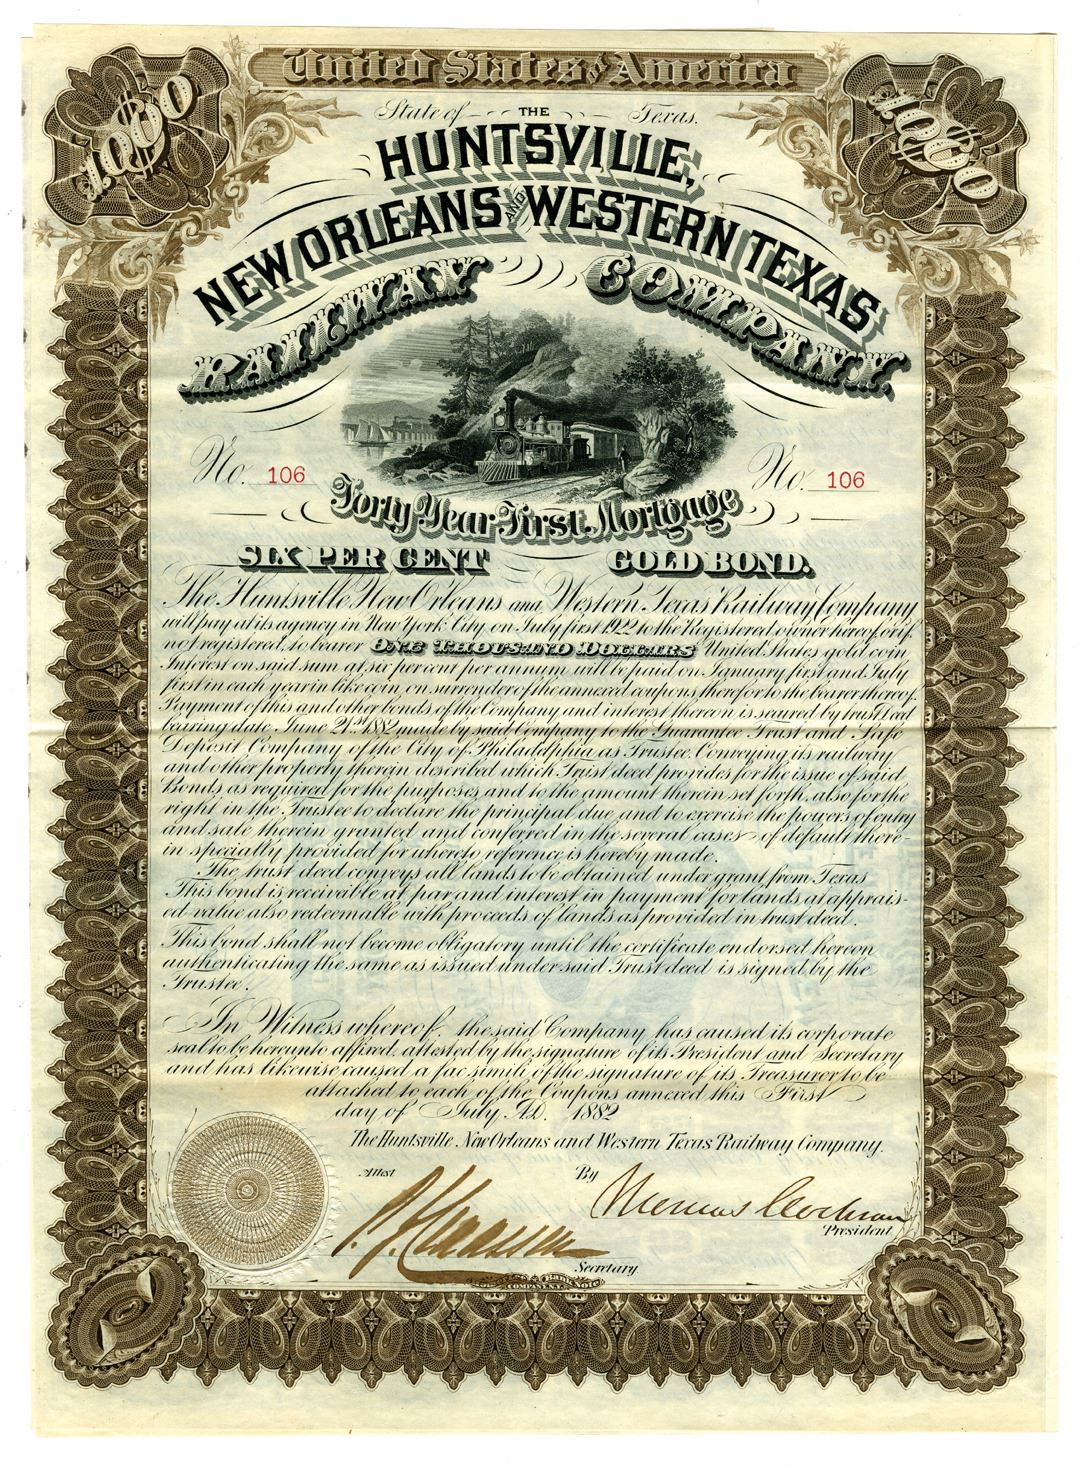 United States of America
$1000
$1000
State of THE Texas.
HUNTSVILLE,
NEW ORLEANS AND WESTERN TEXAS
RAILWAY COMPANY.
No. 106
No. 106
Forty Year First Mortgage
SIX PER CENT GOLD BOND.
The Huntsville New Orleans and Western Texas Railway Company
will pay at its agency in New York City on July first 1922 to the Registered owner hereof or if
not registered, to bearer ONE THOUSAND DOLLARS United States gold coin
Interest on said sum at six per cent per annum will be paid on January first and July
first in each year in like coin, on surrender of the annexed coupons therefor to the bearer thereof.
Payment of this and other bonds of the Company and interest thereon is secured by trust Deed
bearing date June 21st 1882 made by said Company to the Guarantee Trust and Safe
Deposit Company of the City of Philadelphia as Trustee, Conveying its railway
and other property therein described which Trust deed provides for the issue of said
Bonds as required for the purposes and to the amount therein set forth, also for the
right in the Trustee to declare the principal due and to exercise the powers of entry
and sale therein granted and conferred in the several cases of default there-
in specially provided for whereto reference is hereby made.
The trust deed conveys all lands to be obtained under grant from Texas
This bond is receivable at par and interest in payment for lands at apprais-
ed value also redeemable with proceeds of lands as provided in trust deed.
This bond shall not become obligatory until the certificate endorsed hereon
authenticating the same as issued under said Trust deed is signed by the
Trustee.
In Witness whereof, the said Company has caused its corporate
seal to be hereunto affixed, attested by the signature of its President and Secretary
and has likewise caused a fac simili of the signature of its Treasurer to be
attached to each of the Coupons annexed this First
day of July A.D. 1882
The Huntsville New Orleans and Western Texas Railway Company.
Attest By
Thomas Cochran
President
P. J. Klaassen
Secretary.
COMPANY N.Y.